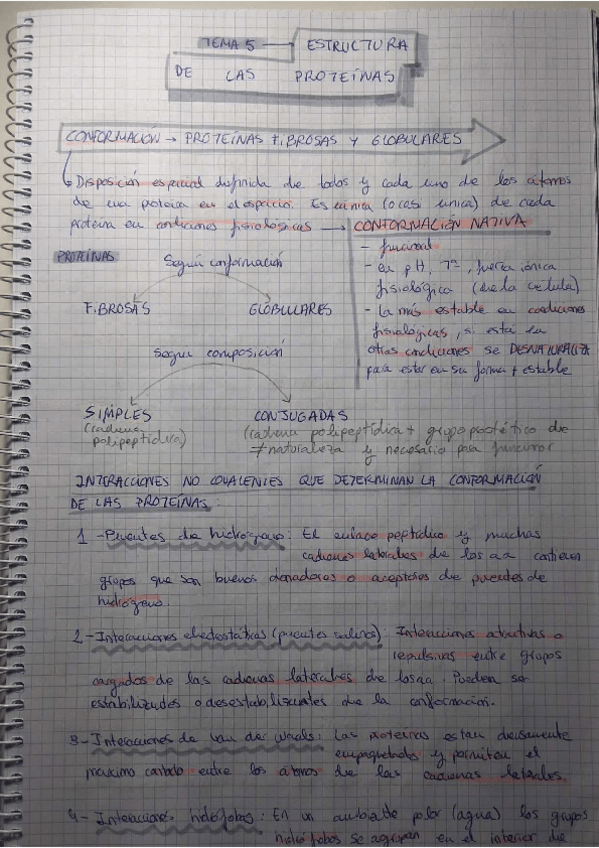 TEMA 5 ESTRUCTURA
DE LAS PROTEÍNAS
CONFORMACIÓN → PROTEÍNAS FIBROSAS Y GLOBULARES
Disposición espacial definida de todos y cada uno de los átomos
de una proteína en el espacio. Es única (o casi única) de cada
proteína en condiciones fisiológicas → CONFORMACIÓN NATIVA
- funcional
- en pH, Tª, fuerza iónica
fisiológica (de la célula)
- La más estable en condiciones
fisiológicas, si está en
otras condiciones se DESNATURALIZA
para estar en su forma + estable
PROTEÍNAS
Según conformación
FIBROSAS GLOBULARES
Según composición
SIMPLES CONJUGADAS
(cadena (cadena polipeptídica + grupo prostético de
polipeptídica) ≠ naturaleza y necesario para funcionar
INTERACCIONES NO COVALENTES QUE DETERMINAN LA CONFORMACIÓN
DE LAS PROTEÍNAS:
1 - Puentes de hidrógeno: El enlace peptídico y muchas
cadenas laterales de los aa contienen
grupos que son buenos donadores o aceptores de puentes de
hidrógeno.
2 - Interacciones electrostáticas (puentes salinos): Interacciones atractivas o
repulsivas entre grupos
cargados de las cadenas laterales de los aa. Pueden ser
estabilizantes o desestabilizantes de la conformación.
3 - Interacciones de Van der Waals: Las proteínas están densamente
empaquetadas y permiten el
máximo contacto entre los átomos de las cadenas laterales.
4 - Interacciones hidrófobas: En un ambiente polar (agua) los grupos
hidrófobos se agrupan en el interior de